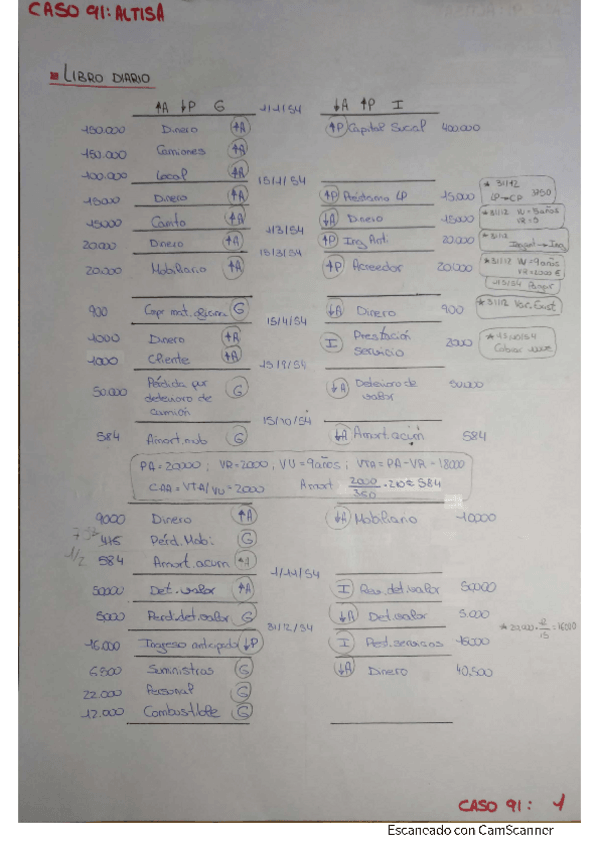 CASO 91: ALTISA
LIBRO DIARIO
↑A ↓P G 1/1/54 ↓A ↑P I
150.000 Dinero ↑A ↑P Capital Social 400.000
150.000 Camiones ↑A
100.000 Local ↑A
15/1/54
15000 Dinero ↑A ↑P Préstamo LP 15.000 * 31/12 LP→CP 3750
15000 Carrito ↑A ↓A Dinero 15000 * 31/12 VU = 5 años VR = 0
1/3/54
20000 Dinero ↑A ↑P Ing. Ant. 20.000 * 31/12 Ingant → Ing
15/3/54
20.000 Mobiliario ↑A ↑P Acreedor 20.000 * 31/12 VU = 9 años VR = 2000 €
900 G ↓A Dinero 900 * 31/12 Var. Exist
15/4/54
1000 Dinero ↑A I Prestación servicio 2000
1000 Cliente ↑A
50.000 Pérdida por deterioro de camión G ↓A Deterioro de valor 50.000
15/10/54
584 Amort. mob G ↓A Amort. acum 584
PA = 20000 ; VR = 2000 ; VU = 9 años ; VTA = PA - VR = 18000
CAA = VTA/VU = 2000 Amort
9000 Dinero ↑A ↓A Mobiliario 10000
416 Pérd. Mobi: G
584 Amort. acum ↑A
1/11/54
50000 Det. valor ↑A I Rev. det. valor 50000
5000 Perd. det. valor G ↓A Det. valor 5.000
31/12/54
16.000 Ingreso anticipado ↓P I Pest. servicios 16000
6500 Suministros G ↓A Dinero 40.500
22.000 Personal G
12.000 Combustible G
CASO 91: 1
Escaneado con CamScanner